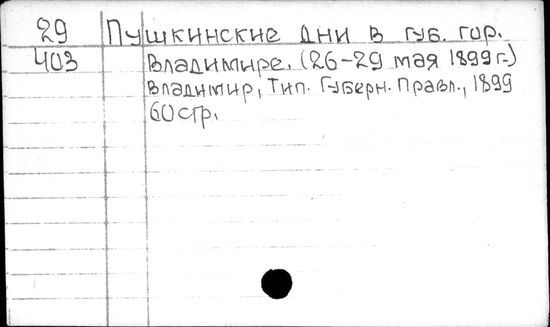 29 Пушкинские дни в губ. гор.
403 Владимире. (26-29 мая 1899 г.)
Владимир, Тип. Губерн. Правл., 1899
60 стр.